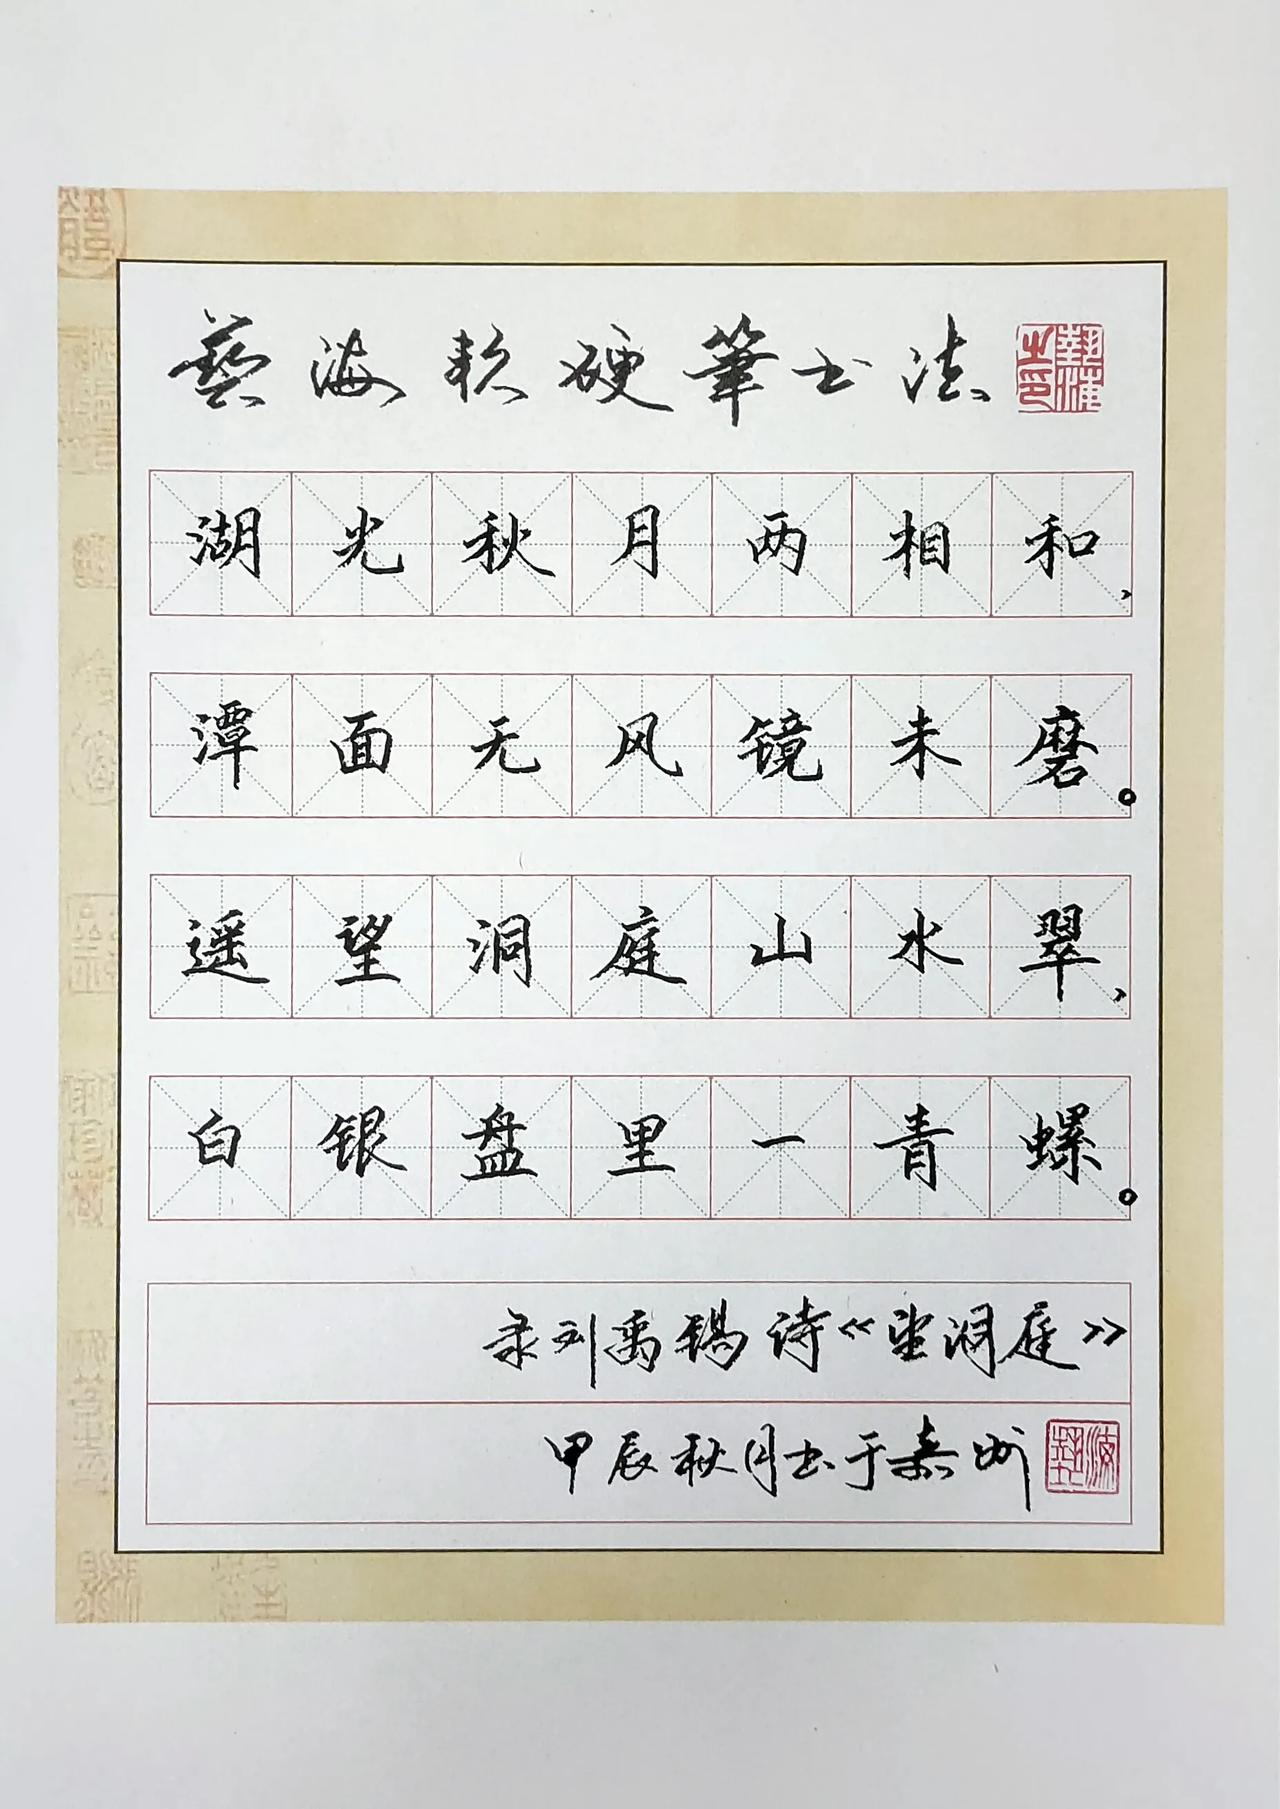 藝海软硬筆书法
湖光秋月两相和，
潭面无风镜未磨。
遥望洞庭山水翠，
白银盘里一青螺。
录刘禹锡诗《望洞庭》
甲辰秋月书于嘉州